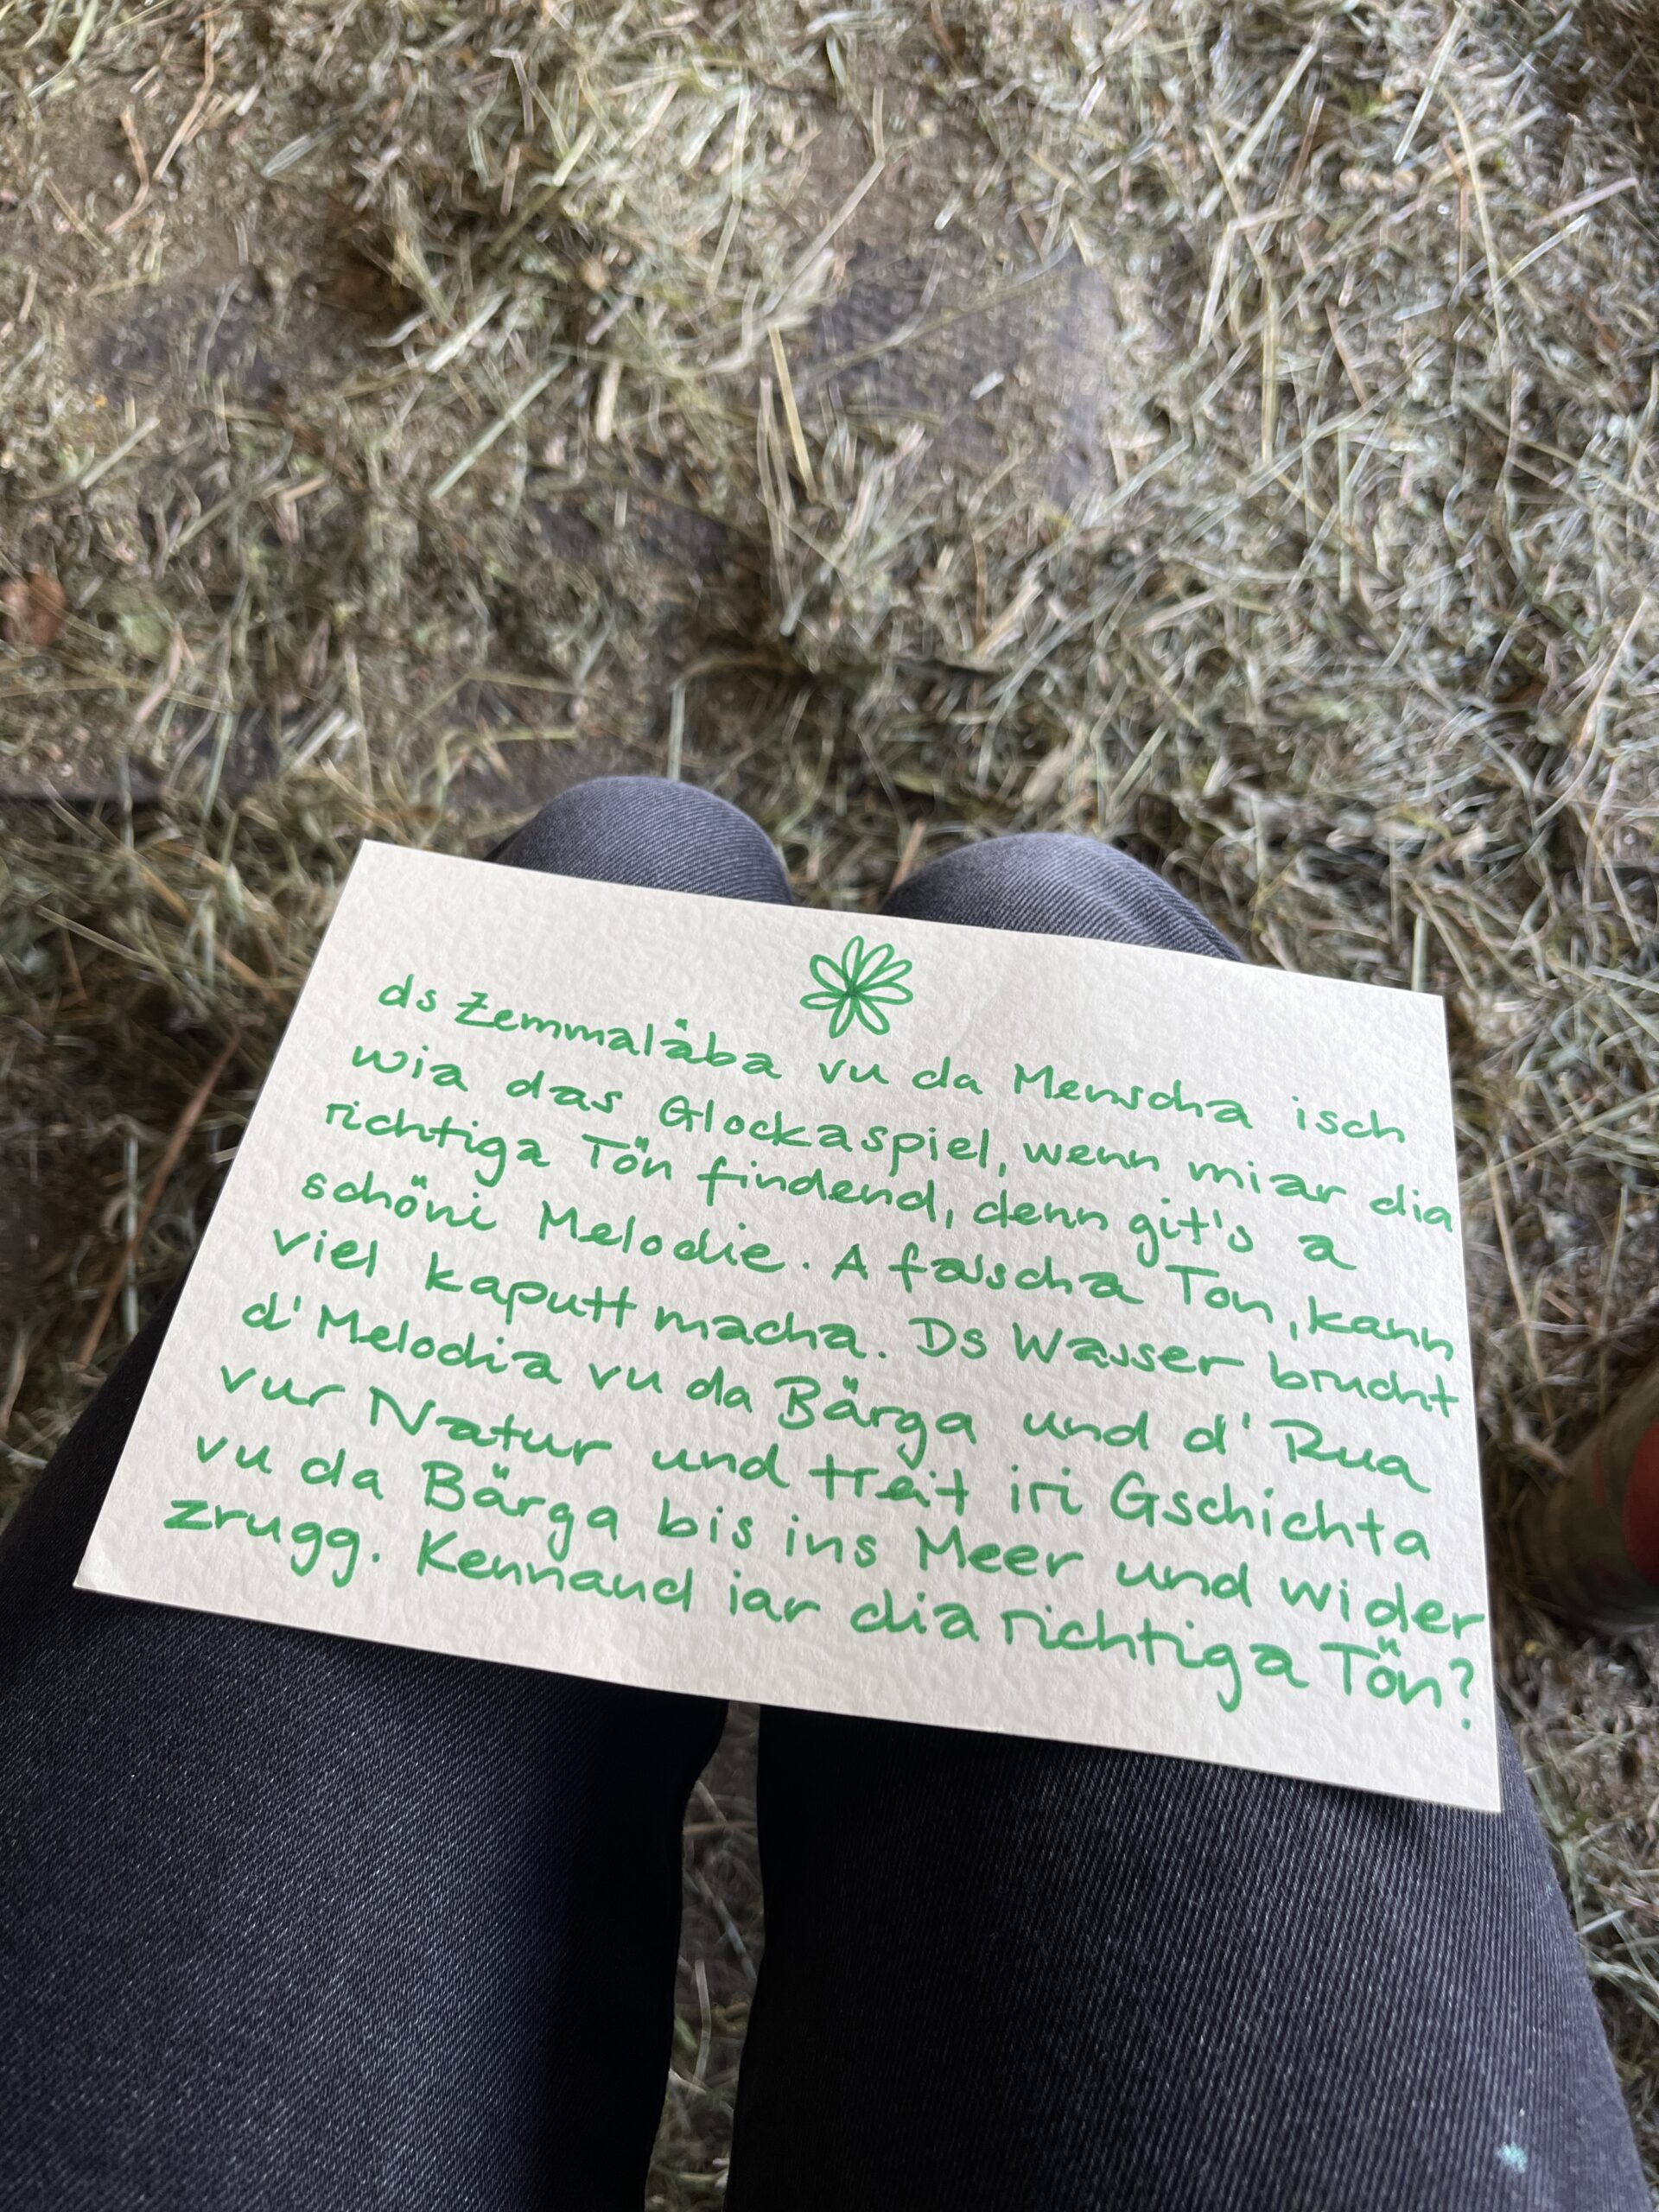 ds Zemmaläba vu da Menscha isch
wia das Glockaspiel, wenn miar dia
richtiga Tön findend, denn git's a
schöni Melodie. A falscha Ton, kann
viel kaputt macha. Ds Wasser brucht
d'Melodia vu da Bärga und d'Rua
vur Natur und treit iri Gschichta
vu da Bärga bis ins Meer und wider
zrugg. Kennand iar dia richtiga Tön?